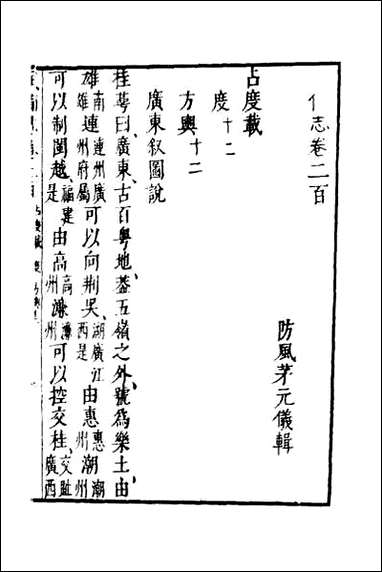 志卷二百
防風茅元儀輯
占度載
度十二
方輿十二
廣東叙圖說
桂萼曰廣東古百粵地葢五嶺之外號爲樂土由
雄南雄連連州廣州府屬可以向荆吳湖廣江西是由惠惠州潮潮州
可以制閩越福建是由高高州濂濂州可以控交桂交趾廣西